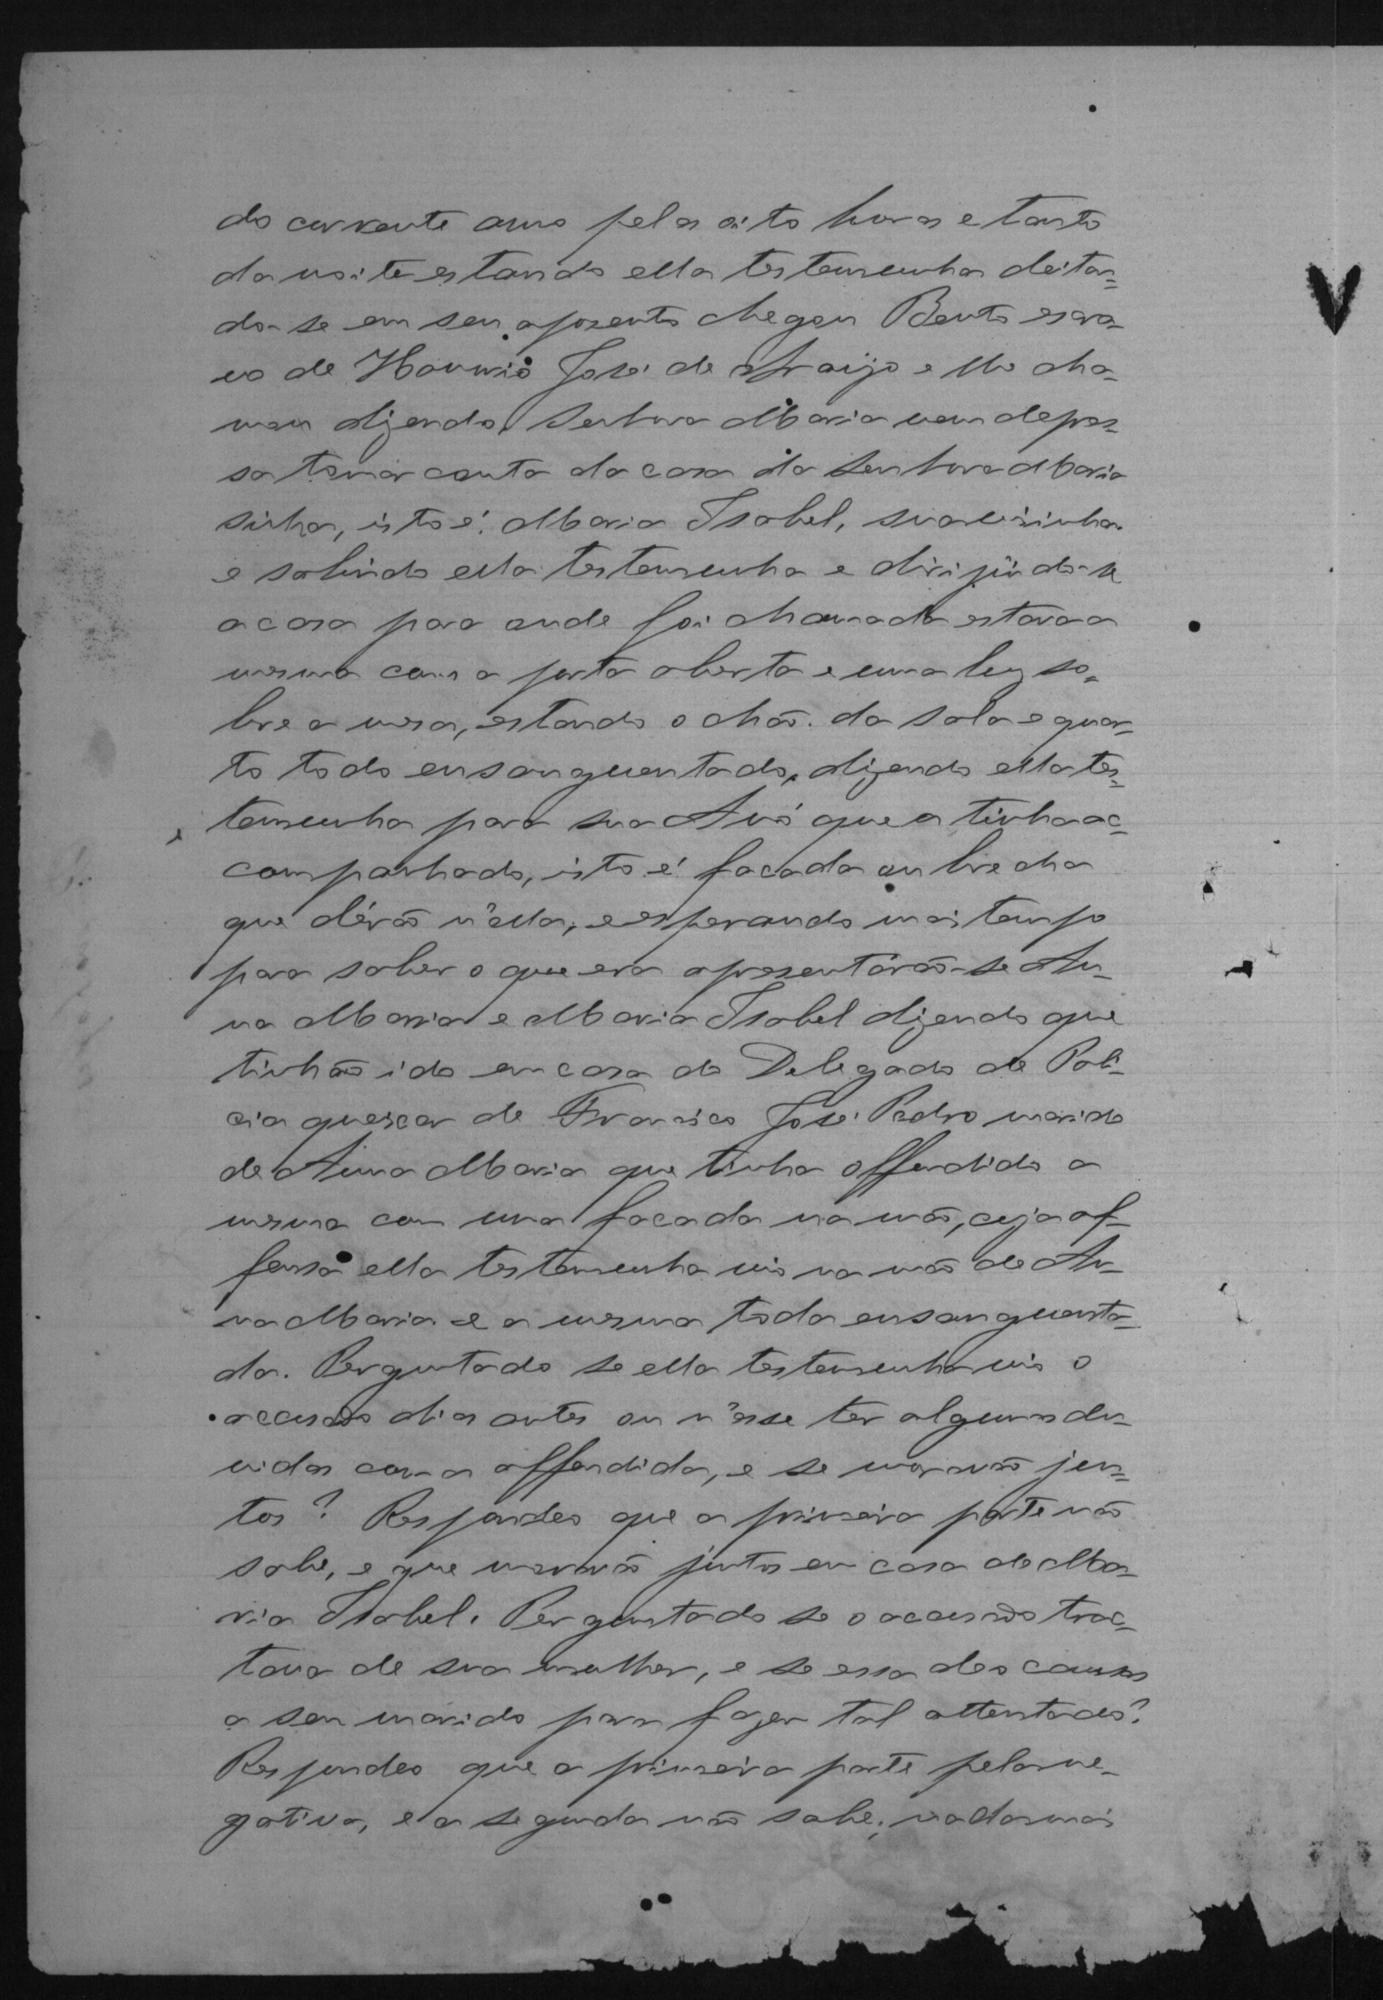 do corrente anno pelas oito horas e tanto
da noite estando ella testemunha deitan=
do-se em seu aposento chegou Bento escra=
vo de Honorio José de Araujo e lhe cha=
mou dizendo, Senhora Maria vem depres=
sa tomar conta da casa da Senhora Maria
sinha, isto é. Maria Isabel, sua visinha.
e sahindo ella testemunha e dirijindo-se
a casa para onde foi chamada estava a
mesma com a porta aberta e uma luz so=
bre a mesa, estando o chão. da sala e quar=
to todo ensanguentado, dizendo ella tes=
temunha para sua Avó que a tinha ac=
companhado, isto é facada ou brecha
que dérão n'ella, e esperando mais tempo
para saber o que era apresentárão-se An=
na Maria e Maria Isabel dizendo que
tinhão ido em casa do Delegado de Poli=
cia queixar de Francisco José Pedro marido
de Anna Maria que tinha offendido a
mesma com uma facada na mão, cuja of=
fensa ella testemunha vio na mão de An=
na Maria e a mesma toda ensanguenta=
da. Perguntado se ella testemunha vio o
accusado dias antes ou n'esse ter algumas du=
vidas com a offendida, e se moravão jun=
tos? Respondeo que a primeira parte não
sabe, e que moravão juntos em casa de Ma=
ria Isabel. Perguntado se o accusado trac=
tava de sua mulher, e se essa deo causas
a seu marido para fazer tal attentado?
Respondeo que a primeira parte pela ne=
gativa, e a segunda não sabe; nada mais